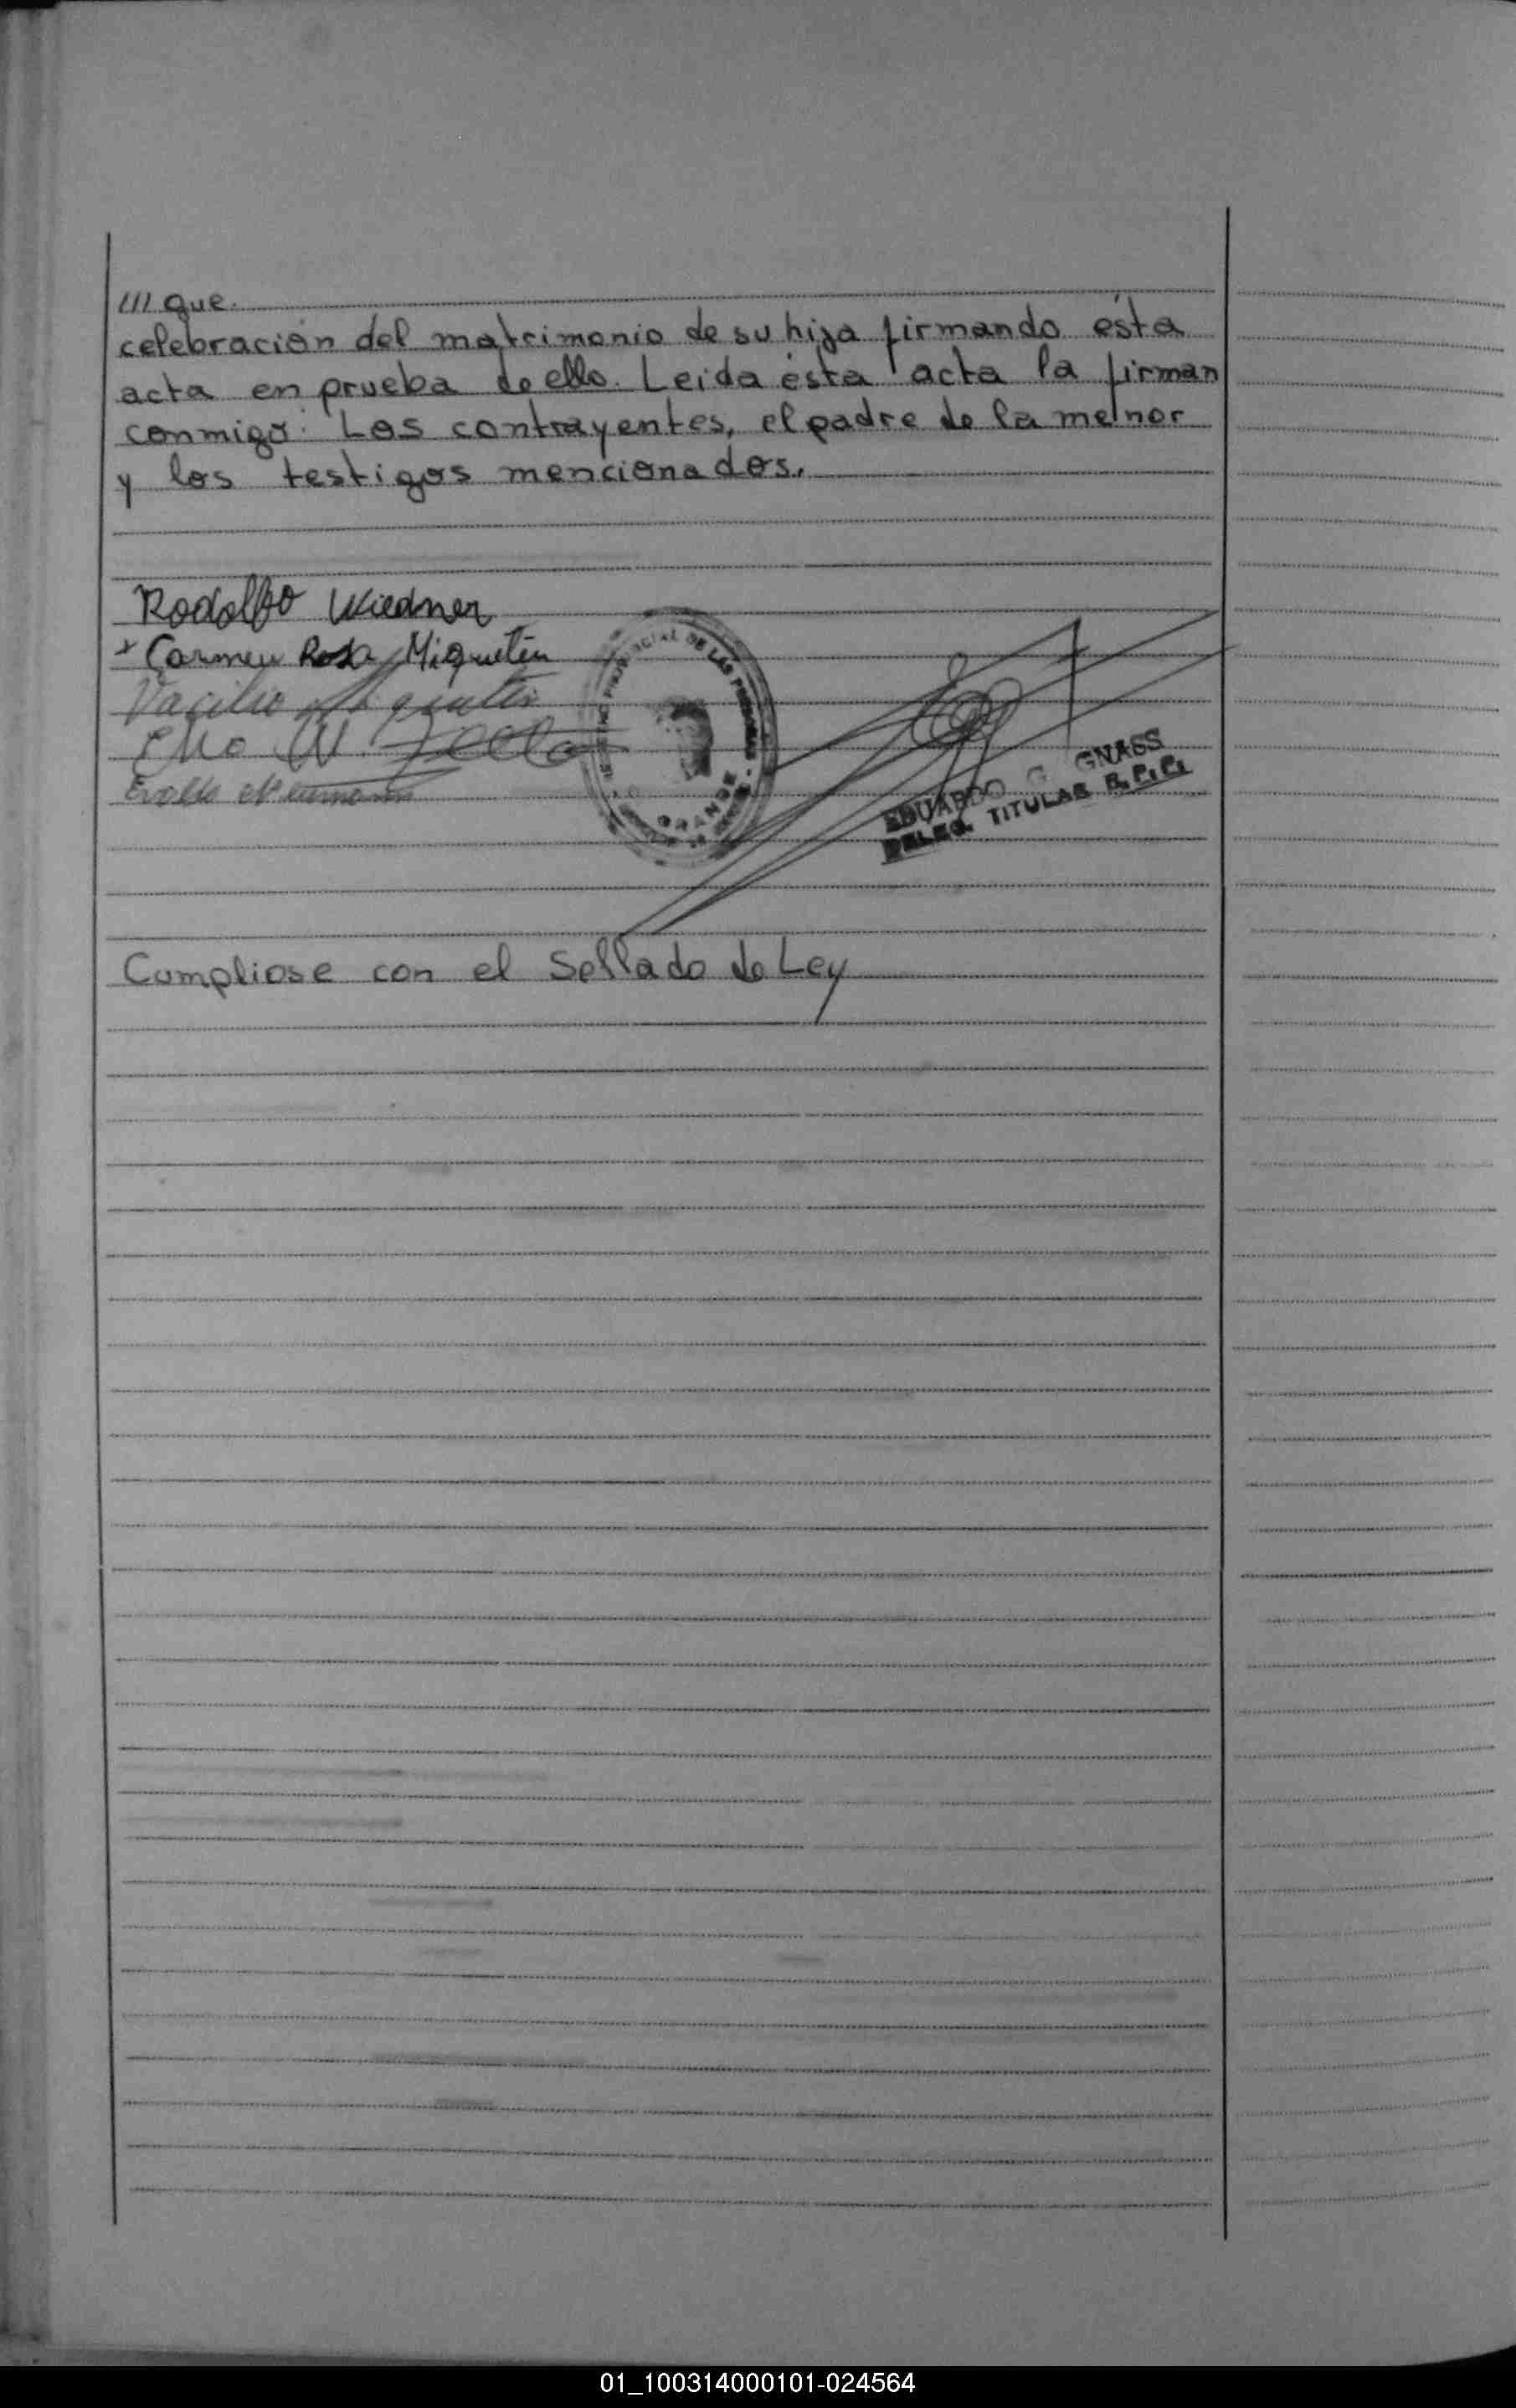 /// que.
celebración del matrimonio de su hija firmando ésta
acta en prueba de ello. Leida ésta acta la firman
conmigo: Los contrayentes, el padre de la menor
y los testigos mencionados.
Rodolfo Wiedner
+ Carmen Rosa Miquetin
CIAL DE LAS
GRANDE
EDUARDO G. GNASS
DELEG. TITULAR R.P.C.
Cumpliose con el Sellado de Ley
01_100314000101-024564